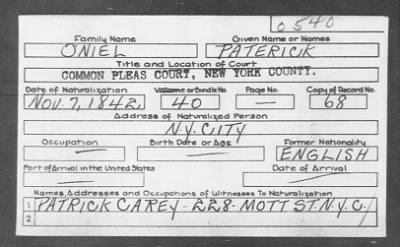 O 540
Family Name Given Name or Names
O'NIEL PATERICK
Title and Location of Court
COMMON PLEAS COURT, NEW YORK COUNTY.
Date of Naturalization Volume or Bundle No. Page No. Copy of Record No.
NOV. 7, 1842, 40 — 68
Address of Naturalized Person
N.Y. CIITY
Occupation Birth Date or Age Former Nationality
— — ENGLISH
Port of Arrival in the United States Date of Arrival
— —
Names, Addresses and Occupations of Witnesses To Naturalization
1 PATRICK CAREY - 228. MOTT ST. N.Y.C.
2